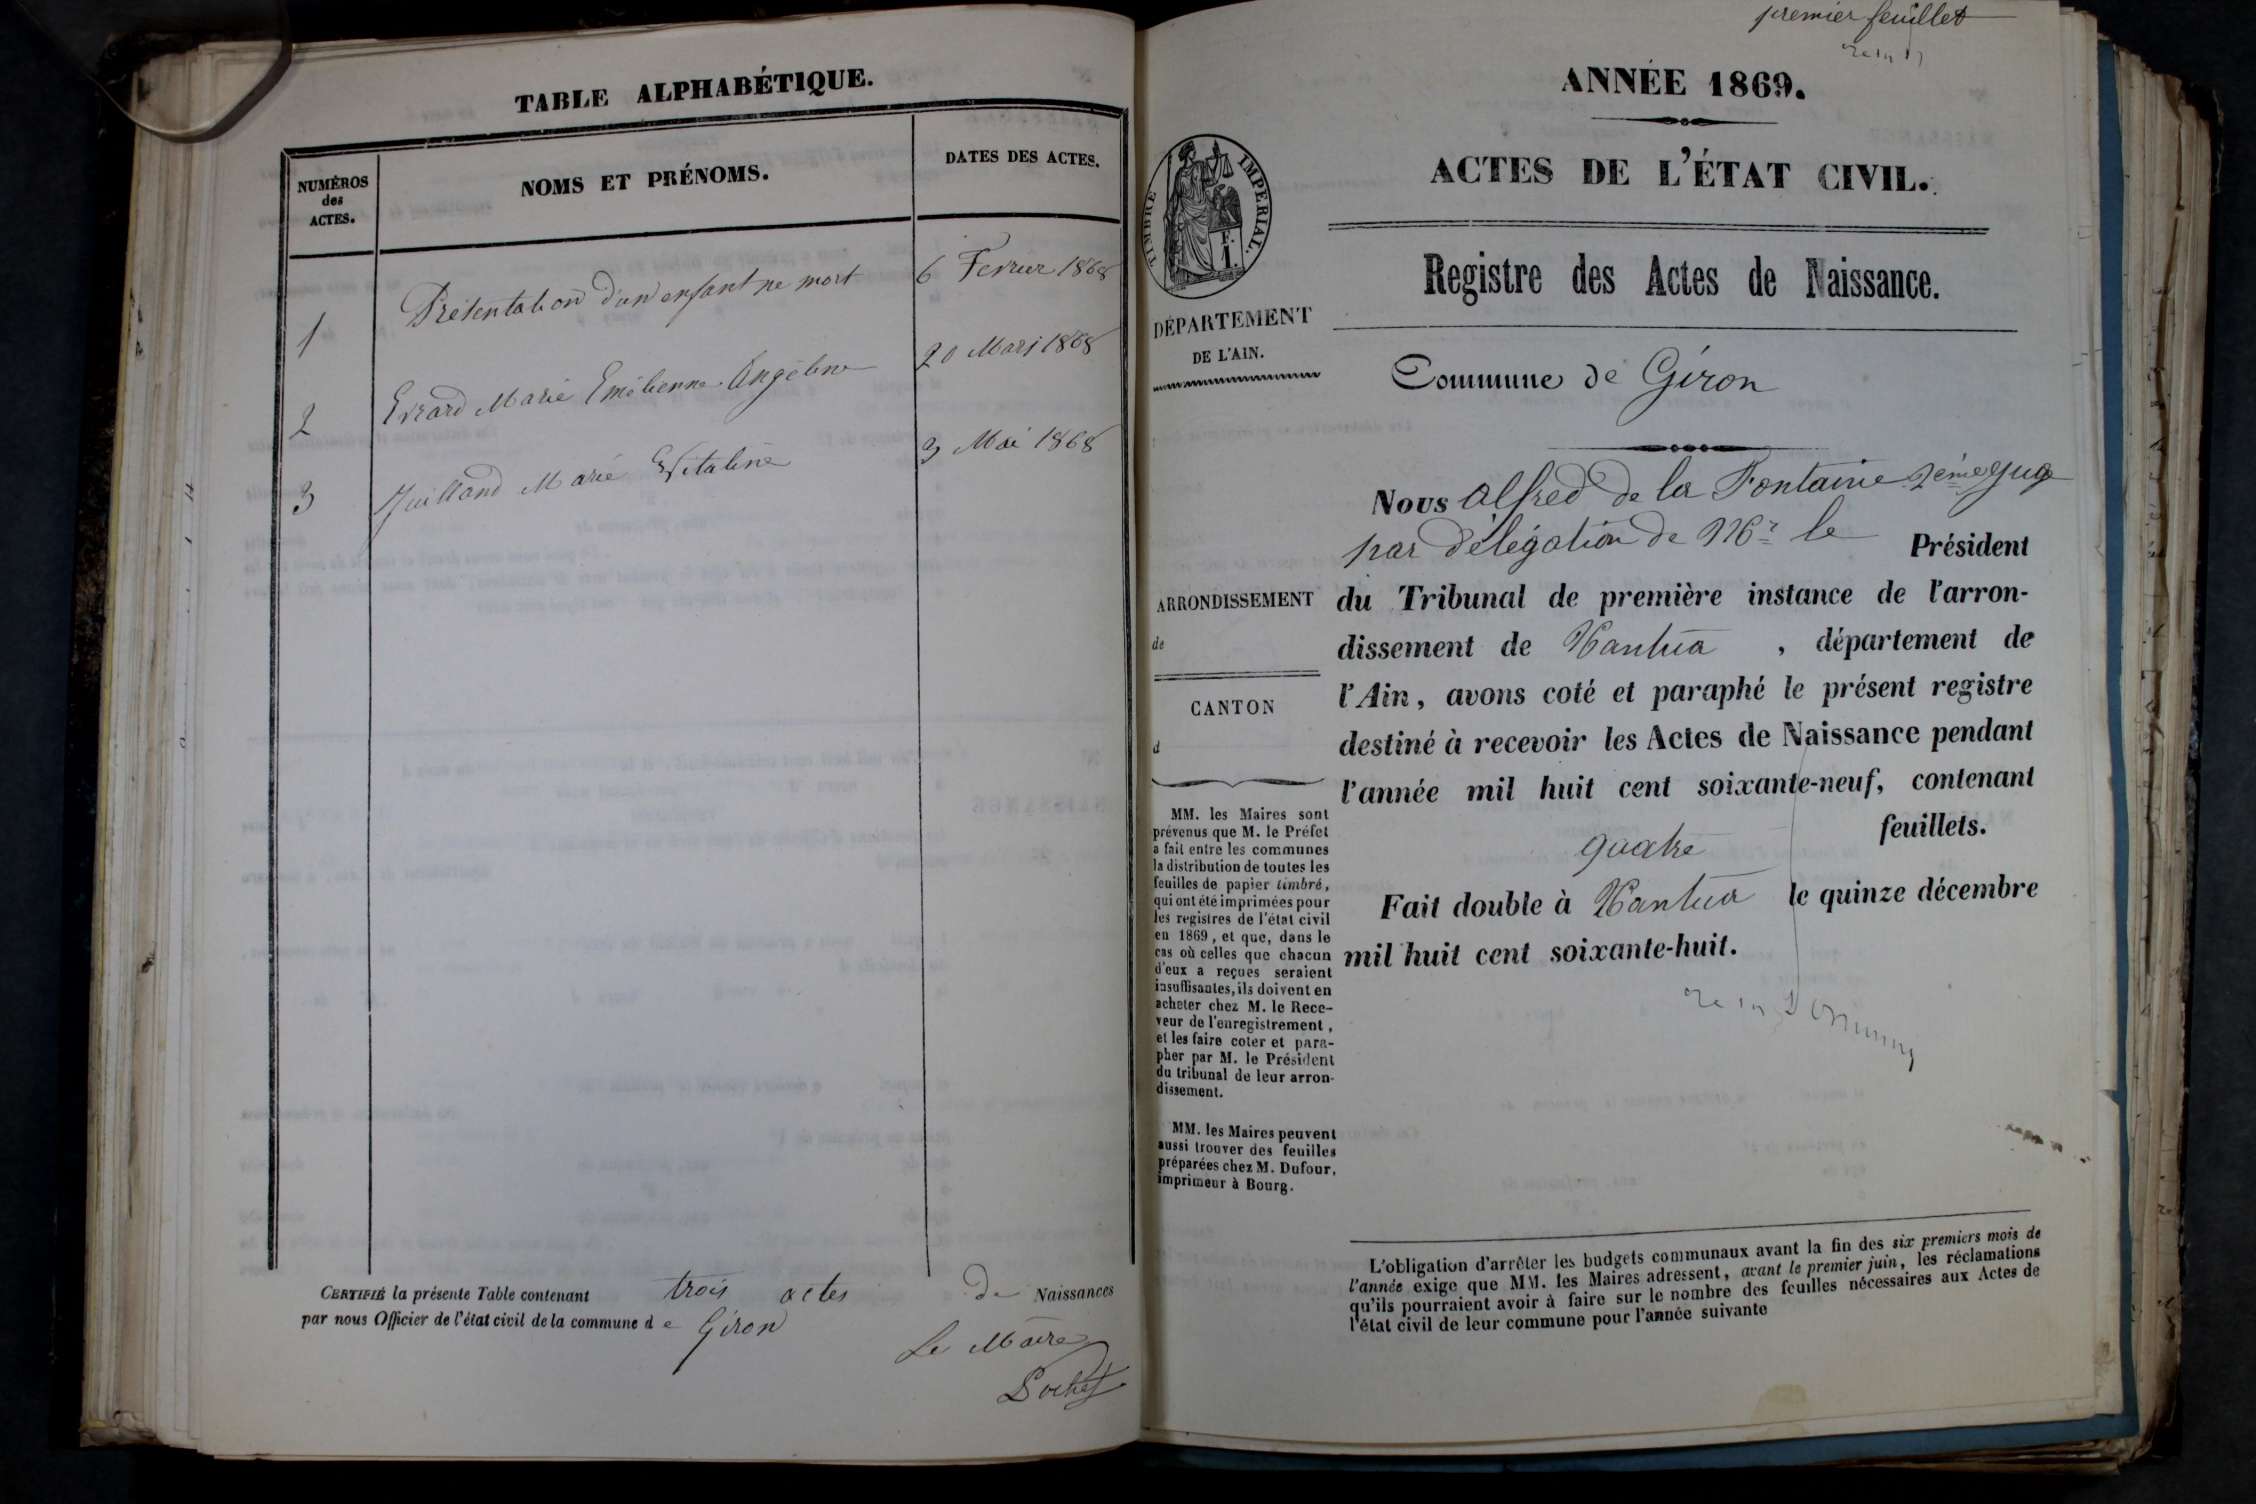 TABLE ALPHABÉTIQUE.
NUMÉROS
des
ACTES.
NOMS ET PRÉNOMS.
DATES DES ACTES.
1 Présentation d'un enfant ne mort 6 Fevrier 1868
2 Evrard Marie Emélienne Angéline 20 Mars 1868
3 Juilland Marie Vitaline 3 Mai 1868
CERTIFIÉ la présente Table contenant trois actes de Naissances
par nous Officier de l'état civil de la commune de Giron
Le Maire
premier feuillet
ANNÉE 1869.
ACTES DE L'ÉTAT CIVIL.
Registre des Actes de Naissance.
TIMBRE IMPÉRIAL.
DÉPARTEMENT
DE L'AIN.
Commune de Giron
Nous Alfred de la Fontaine 2eme juge
par délégation de Mr le Président
du Tribunal de première instance de l'arron-
dissement de Nantua, département de
l'Ain, avons coté et paraphé le présent registre
destiné à recevoir les Actes de Naissance pendant
l'année mil huit cent soixante-neuf, contenant
quatre feuillets.
Fait double à Nantua le quinze décembre
mil huit cent soixante-huit.
ARRONDISSEMENT
de
CANTON
d
MM. les Maires sont
prévenus que M. le Préfet
a fait entre les communes
la distribution de toutes les
feuilles de papier timbré,
qui ont été imprimées pour
les registres de l'état civil
en 1869, et que, dans le
cas où celles que chacun
d'eux a reçues seraient
insuffisantes, ils doivent en
acheter chez M. le Rece-
veur de l'enregistrement,
et les faire coter et para-
pher par M. le Président
du tribunal de leur arron-
dissement.
MM. les Maires peuvent
aussi trouver des feuilles
préparées chez M. Dufour,
imprimeur à Bourg.
L'obligation d'arrêter les budgets communaux avant la fin des six premiers mois de
l'année exige que MM. les Maires adressent, avant le premier juin, les réclamations
qu'ils pourraient avoir à faire sur le nombre des feuilles nécessaires aux Actes de
l'état civil de leur commune pour l'année suivante